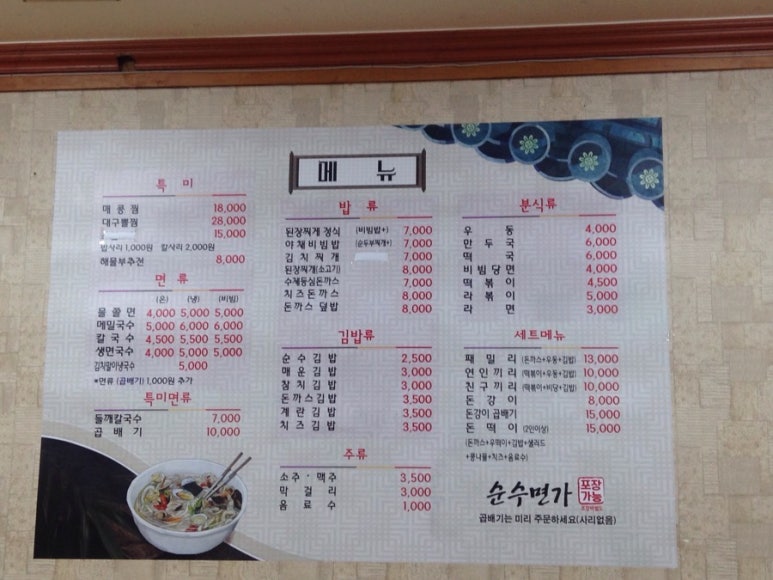 메 뉴
특 미
매콩찜 18,000
대구뽈찜 28,000
15,000
밥사리 1,000원 칼사리 2,000원
해물부추전 8,000
면 류
(온) (냉) (비빔)
물쫄면 4,000 5,000 5,000
메밀국수 5,000 6,000 6,000
칼국수 4,500 5,500 5,500
생면국수 4,000 5,000 5,000
김치말이냉국수 5,000
*면류 (곱배기) 1,000원 추가
특미면류
들깨칼국수 7,000
곱배기 10,000
밥 류
된장찌개 정식 (비빔밥+) 7,000
야채비빔밥 (순두부찌개+) 7,000
김치찌개 7,000
된장찌개(소고기) 8,000
수제등심돈까스 7,000
치즈돈까스 8,000
돈까스 덮밥 8,000
김밥류
순수김밥 2,500
매운김밥 3,000
참치김밥 3,000
돈까스김밥 3,500
계란김밥 3,500
치즈김밥 3,500
주류
소주 · 맥주 3,500
막걸리 3,000
음료수 1,000
분식류
우동 4,000
만두국 6,000
떡국 6,000
비빔당면 4,000
떡볶이 4,500
라볶이 5,000
라면 3,000
세트메뉴
패밀리 (돈까스+우동+김밥) 13,000
연인끼리 (떡볶이+우동+김밥) 10,000
친구끼리 (떡볶이+비당+김밥) 10,000
돈강이 8,000
돈강이 곱배기 15,000
돈떡이 (2인이상) 15,000
(돈까스+우떡이+김밥+샐러드
+콩나물+치즈+음료수)
순수면가 포장가능
곱배기는 미리 주문하세요(사리없음)